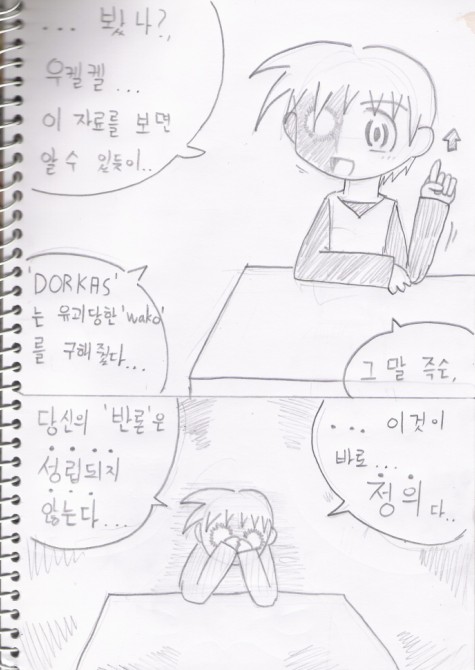 ... 봤나?,
우켈켈...
이 자료를 보면
알 수 있듯이..
'DORKAS'
는 유괴당한 'wako'
를 구해줬다...
그 말 즉슨,
당신의 '반론'은
성립되지
않는다...
... 이것이
바로...
정의다..